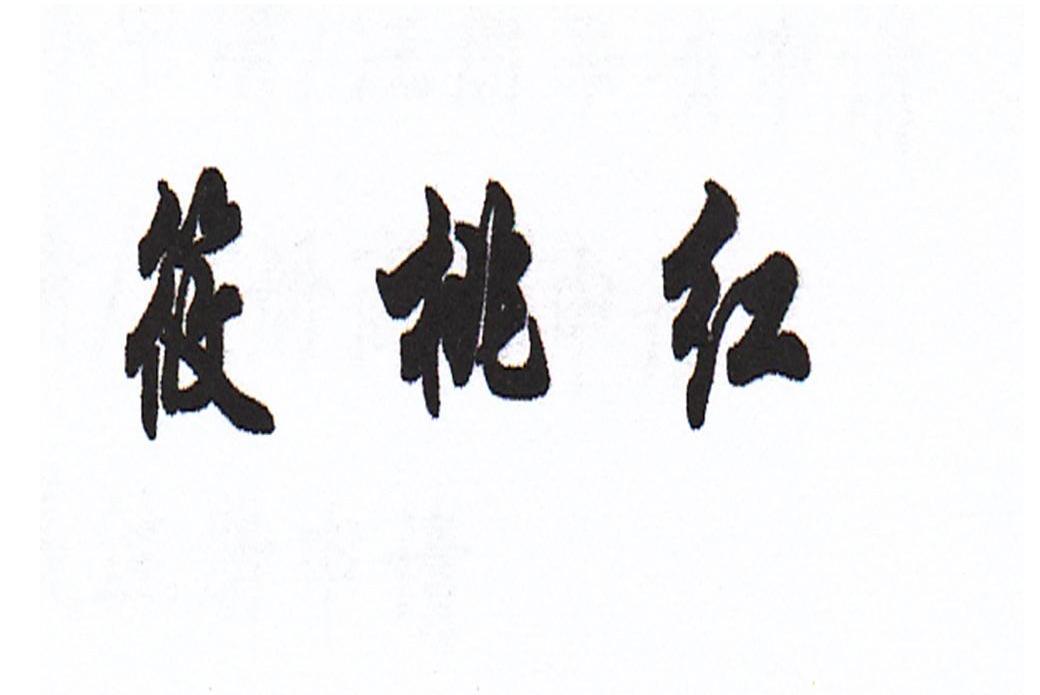 筱桃红